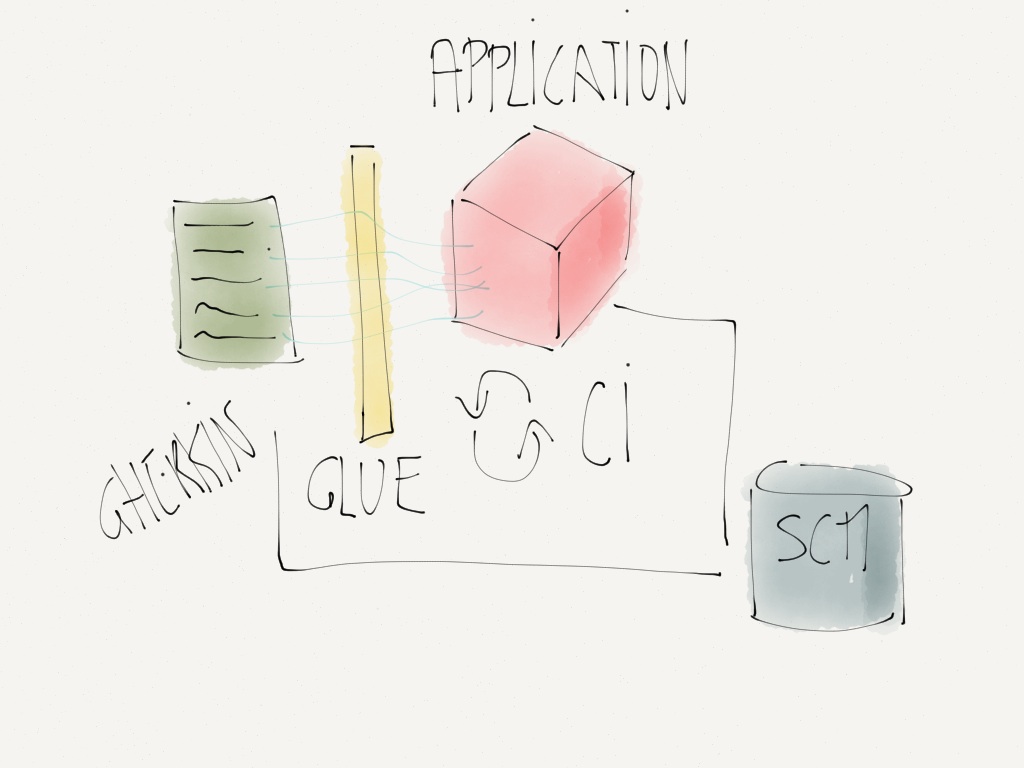 APPLICATION
GHERKIN
GLUE
CI
SCM